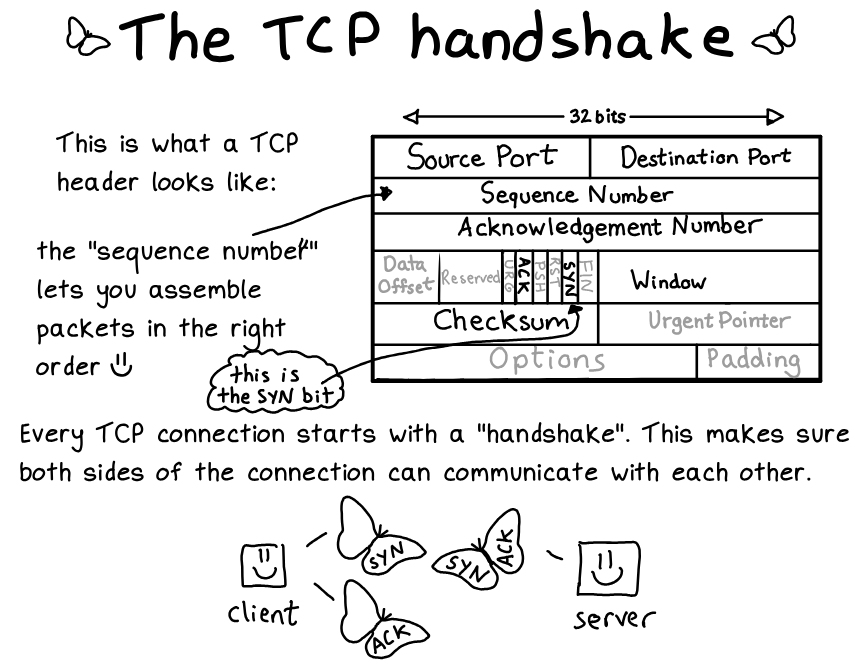 The TCP handshake
This is what a TCP
header looks like:
the "sequence number"
lets you assemble
packets in the right
order
this is
the SYN bit
32 bits
Source Port
Destination Port
Sequence Number
Acknowledgement Number
Data
Offset
Reserved
URG
ACK
PSH
RST
SYN
FIN
Window
Checksum
Urgent Pointer
Options
Padding
Every TCP connection starts with a "handshake". This makes sure
both sides of the connection can communicate with each other.
SYN
SYN
ACK
client
server
ACK